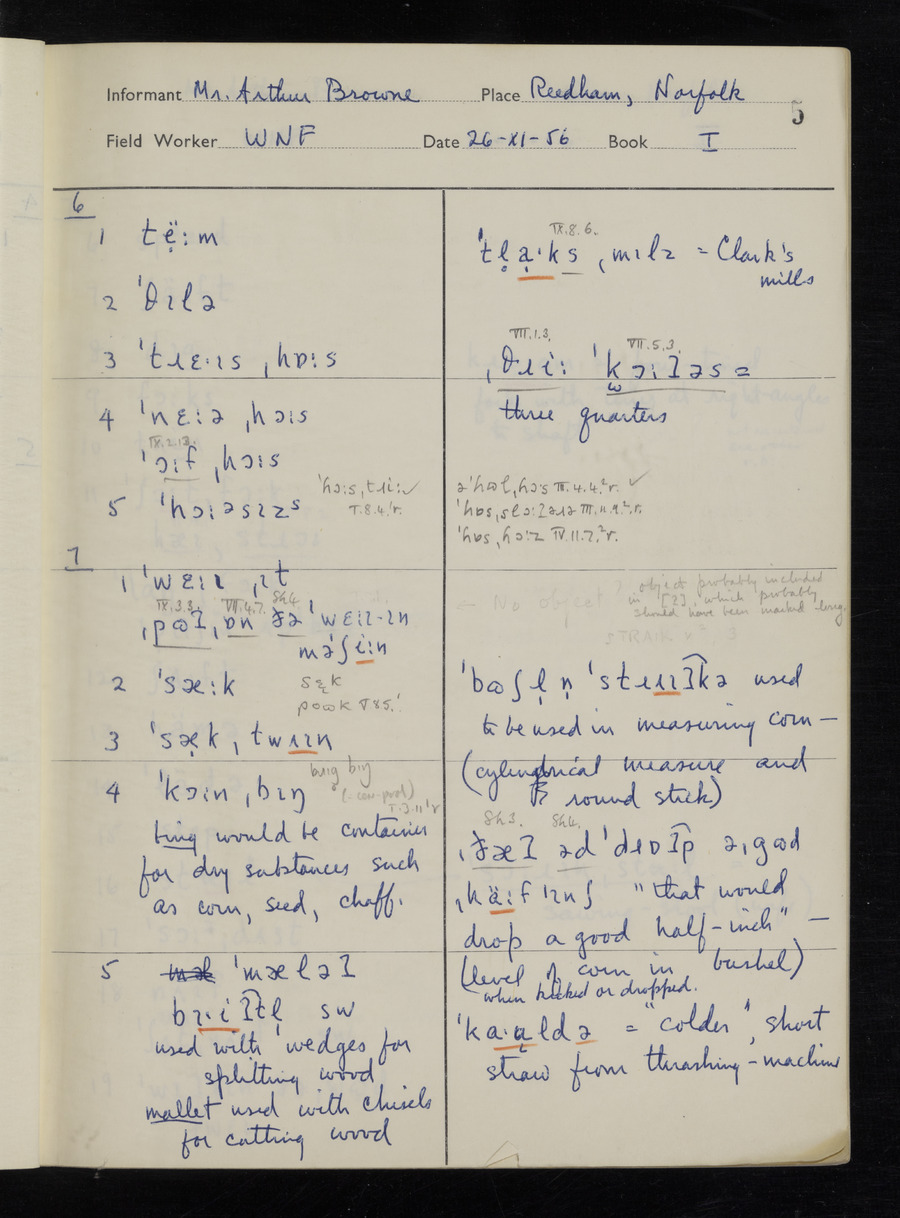 Informant Mr. Arthur Browne Place Reedham, Norfolk
5
Field Worker WNF Date 26-XI-56 Book I
6
1 të̞:m
2 ˈθɪlə
3 ˈtɹɛ·ɪs ˌhɒ:s
4 ˈnɛ:ə ˌhɔ:s
IX.2.13.
ˈɔ:f ˌhɔ:s
5 ˈhɔ:əsɪzs
ˈhɔ:s, tɹi: ✓
I.8.4.ˈr.
7
1 ˈwɛ:ɪ ˌɪt
IX.3.3. VII.4.7. Sh4
ˌpɷʔ ˌɒn ðə ˈwɛ:ɪ-ɪn
məʃi:n
2 ˈsæ:k
sæ̞k
3 ˈsæ̞k ˌtwɪɪn
4 ˈkɔ:n ˌbɪŋ
bing would be container
for dry substances such
as corn, seed, chaff.
5 ˈmæləʔ
sw
used with wedges for
splitting wood
mallet used with chisels
for cutting wood
IX.8.6.
ˈtl̥a̞·ks ˌmɪlz = Clark's
mills
VII.1.3. VII.5.3.
ˌθɹi: ˈkɔ:ʔəs =
three quarters
əˈhɷl ˌhɔ:s III.4.4.²r. ✓
← No object?
object probably included
in [ɪ], which probably
should have been marked long.
ˈbɷʃl̩ n̩ ˈstɹɪʔkə used
to be used in measuring corn —
(cylindrical measure and
round stick)
Sh3. Sh4.
ˌðæʔ əd ˈdɹɒʔp ə ˌgɷd
ˌhä:f ˈɪnʃ "that would
drop a good half-inch" —
(level of corn in bushel)
when kicked or dropped.
= "colder", short
straw from thrashing-machine